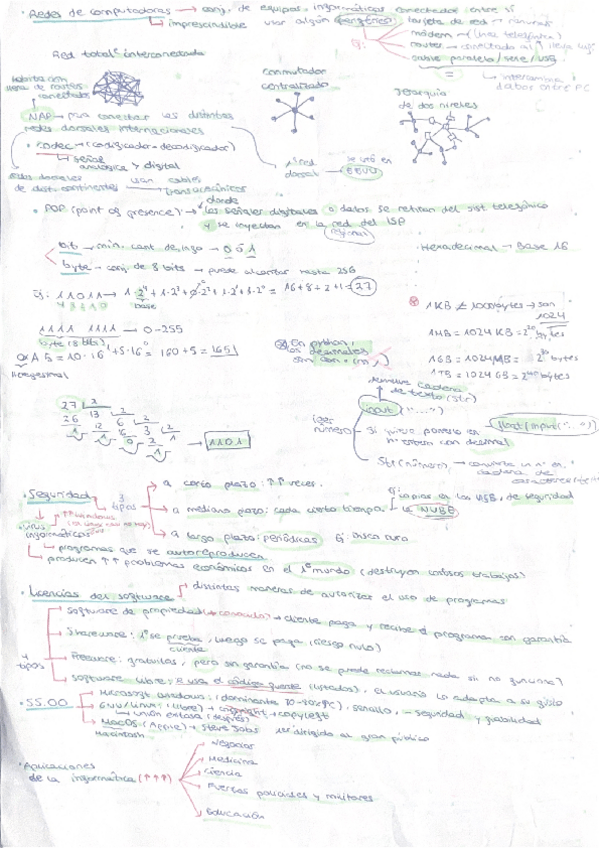 · Redes de computadoras → conj. de equipos informáticos conectados entre sí
imprescindible usar algún periférico
Ej: tarjeta de red → ranuras
módem → (línea telefónica)
router → conectado al
cable paralelo / serie / USB
intercambiar datos entre PC
Red total interconectada
conmutador centralizado
Jerarquía de dos niveles
NAP → para conectar las distintas redes dorsales internacionales
· Codec → (codificador - decodificador)
señal analógica > digital
1ª red dorsal
se usó en EEUU
Redes dorsales de dist. continentes usan cables transoceánicos
· POP (point of presence) → donde las señales digitales o datos se retiran del sist telefónico y se inyectan en la red del ISP
bit → min. cant de info → 0 ó 1
byte → conj. de 8 bits → puede alcanzar hasta 256
· Hexadecimal → Base 16
Ej: 11011 → 1·2⁴ + 1·2³ + 0·2² + 1·2¹ + 1·2⁰ = 16+8+2+1 = 27
4 3 2 1 0
base
1111 1111 → 0-255
byte (8 bits)
0xA5 = 10·16¹ + 5·16⁰ = 160+5 = 165
1KB ≠ 1000 bytes → son 1024
1MB = 1024 KB = 2²⁰ bytes
1GB = 1024MB = 2³⁰ bytes
1TB = 1024 GB = 2⁴⁰ bytes
En python, los decimales son con
27 2
26 13 2
1 12 6 2
1 6 3 2
0 2 1
1
1101
input ("....")
cadena de texto (str)
Si quiere ponerlo en nº entero con decimal
float(input("..."))
str(número) → convierte un nº en cadena de caracteres
· Seguridad
3 tipos
a corto plazo: ↑↑ veces.
a mediano plazo: cada cierto tiempo.
Ej: copias en los USB, de seguridad
La NUBE
a largo plazo: periódicas Ej: disco duro
· virus informáticos
programas que se autoreproducen
producen ↑↑ problemas económicos en el 1º mundo (destruyen muchos trabajos)
· Licencias del software → distintas maneras de autorizar el uso de programas
4 tipos
Software de propiedad → cliente paga y recibe el programa con garantía
Shareware: 1º se prueba, luego se paga (riesgo nulo)
cliente
Freeware: gratuitas, pero sin garantía (no se puede reclamar nada si no funciona)
Software libre: se usa el código fuente, el usuario lo adapta a su gusto
· SS.OO
Microsoft Windows: (dominante 70-80% PC)
GNU/Linux: (libre) → copyright → copyleft, sencillo, - seguridad y gratuidad
MacOS: (Apple) → Steve Jobs 1º dirigido al gran público
Macintosh
· Aplicaciones de la informática (↑↑↑)
Negocios
Medicina
Ciencia
Fuerzas policiales y militares
Educación